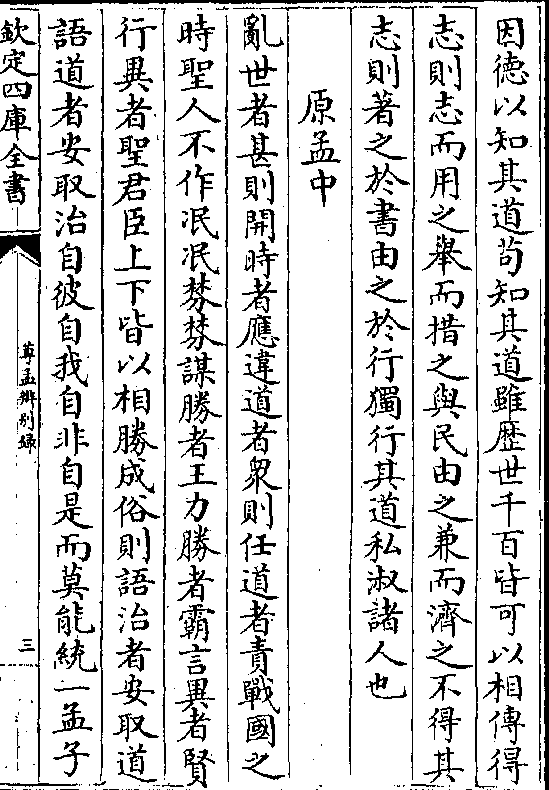 因德以知其道苟知其道雖歴世千百皆可以相傳得
志則志而用之舉而措之與民由之兼而濟之不得其
志則著之於書由之於行獨行其道私淑諸人也
原孟中
亂世者甚則開時者應違道者衆則任道者責戰國之
時聖人不作泯泯棼棼謀勝者王力勝者霸言異者賢
行異者聖君臣上下皆以相勝成俗則語治者安取道
語道者安取治自彼自我自非自是而莫能統一孟子
欽定四庫全書
尊孟辨别録
三